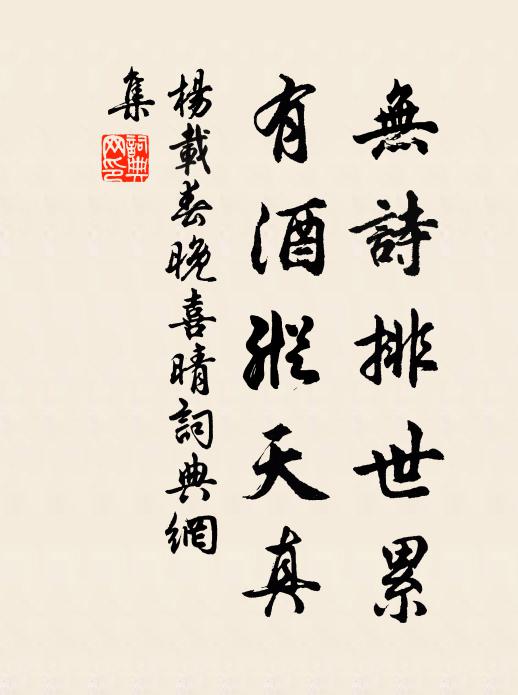 無詩排世累
有酒縱天真
楊載春晚喜晴詞典網
集
詞典網印